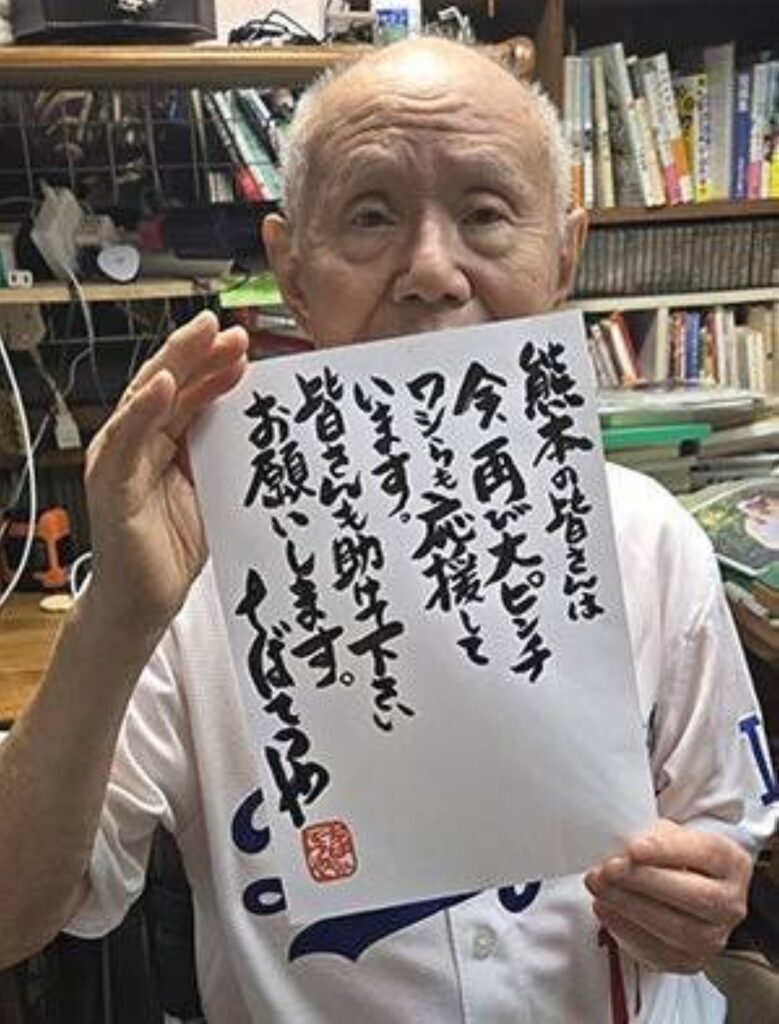 熊本の皆さんは
今、再び大ピンチ
ワシらも応援して
います。
皆さんも助けて下さい
お願いします。
ちばてつや